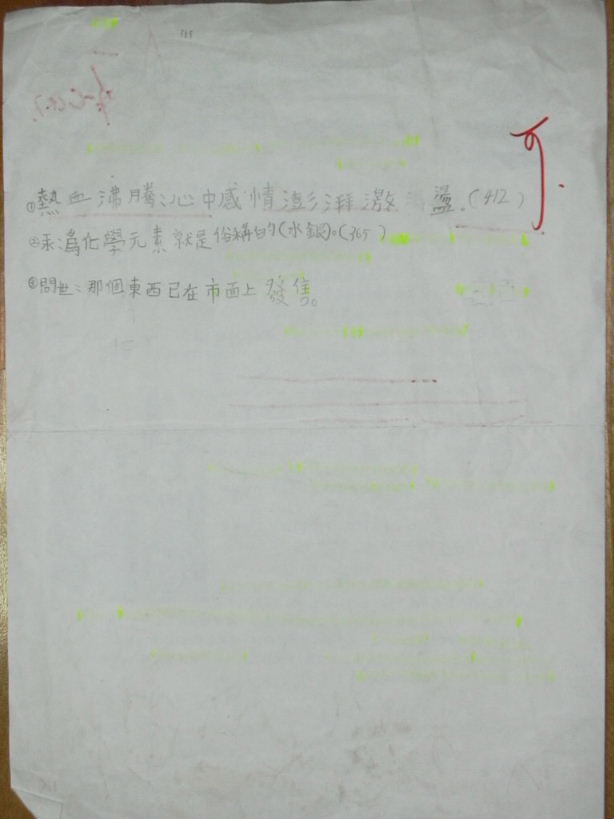 ①熱血沸騰:心中感情澎湃激盪。(412)
②汞:為化學元素就是俗稱的(水銀)。(365)
③問世:那個東西已在市面上發售。
可.